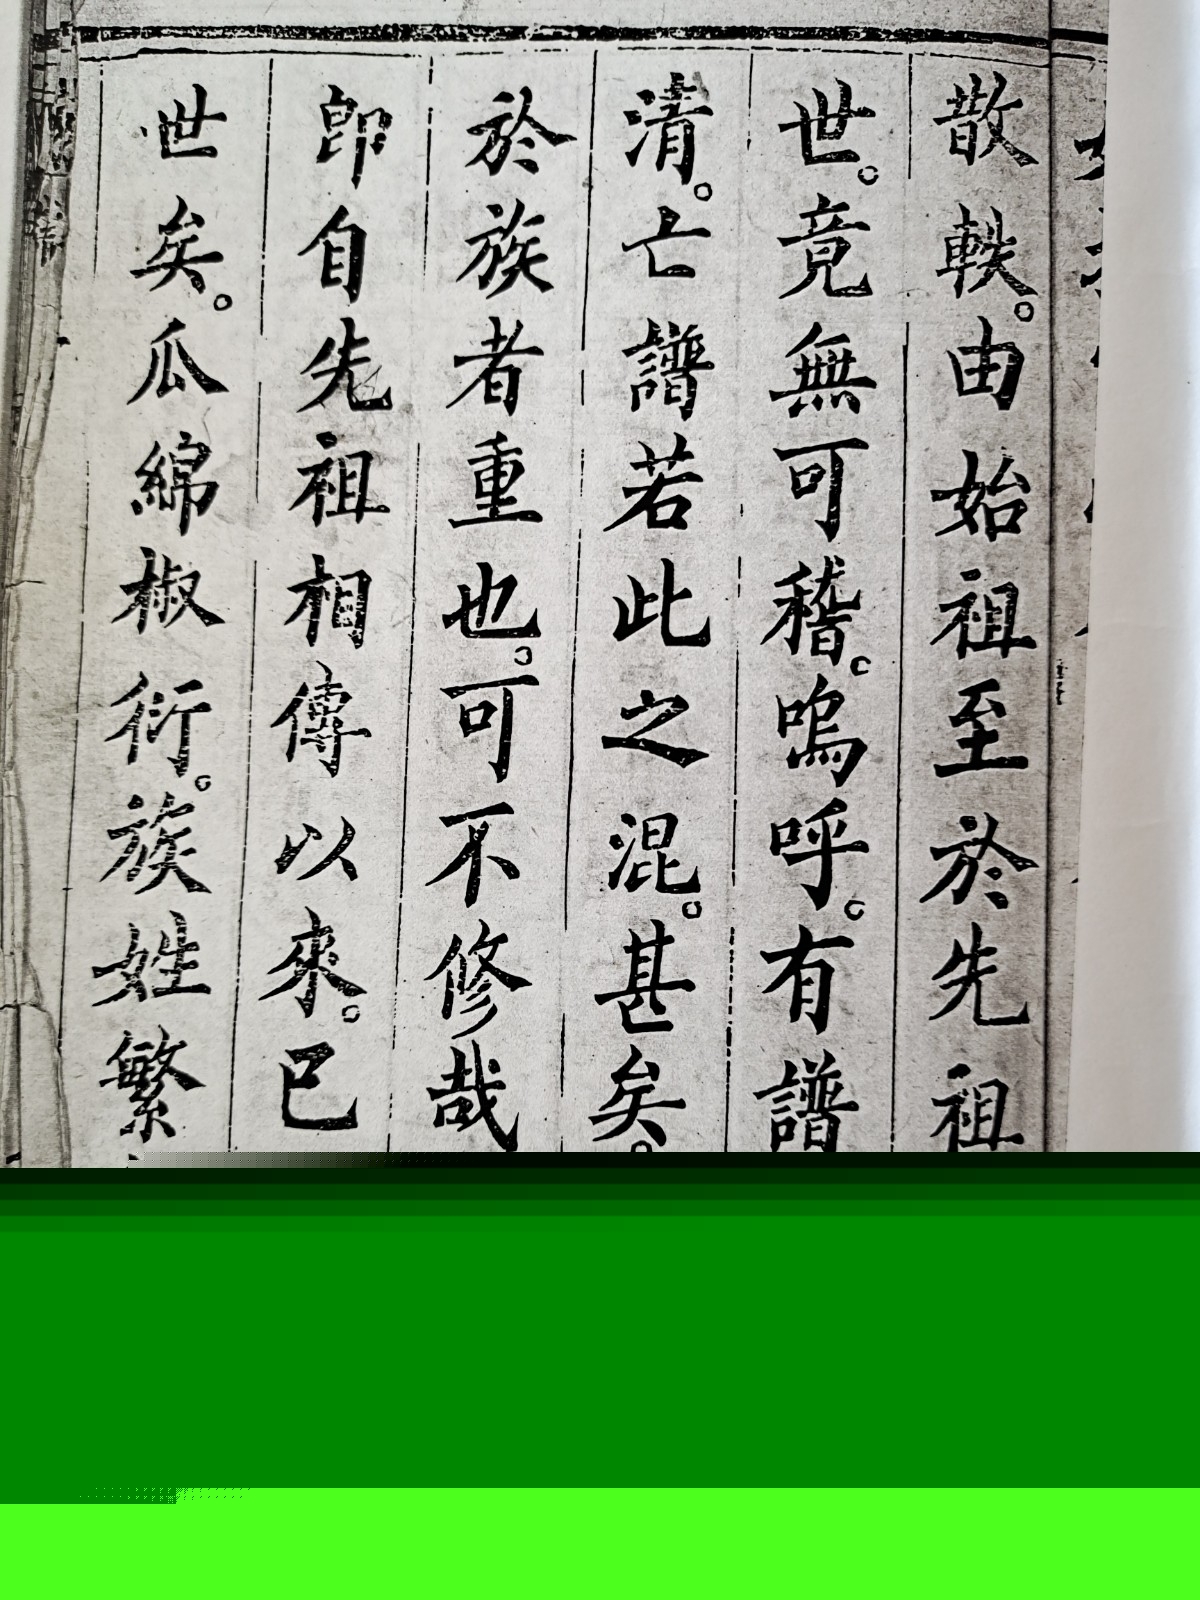 散軼。由始祖至於先祖
世。竟無可稽。嗚呼。有譜
清。亡譜若此之混。甚矣。
於族者重也。可不修哉
即自先祖相傳以來。已
世矣。瓜綿椒衍。族姓繁